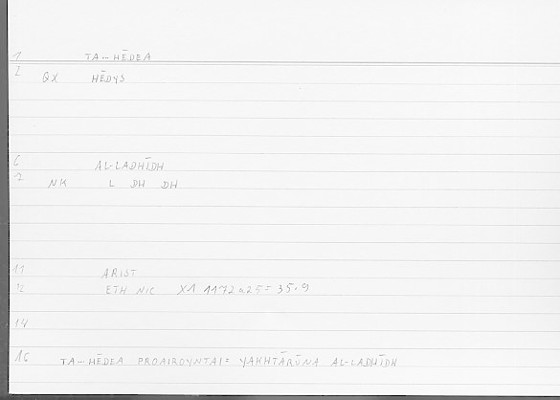 1 TA-HĒDEA
2 QX HĒDYS
6 AL-LADHĪDH
7 NK L DH DH
11 ARIST
12 ETH NIC X1 1172a25= 35.9
14
16 TA-HĒDEA PROAIROYNTAI= YAKHTĀRŪNA AL-LADHĪDH